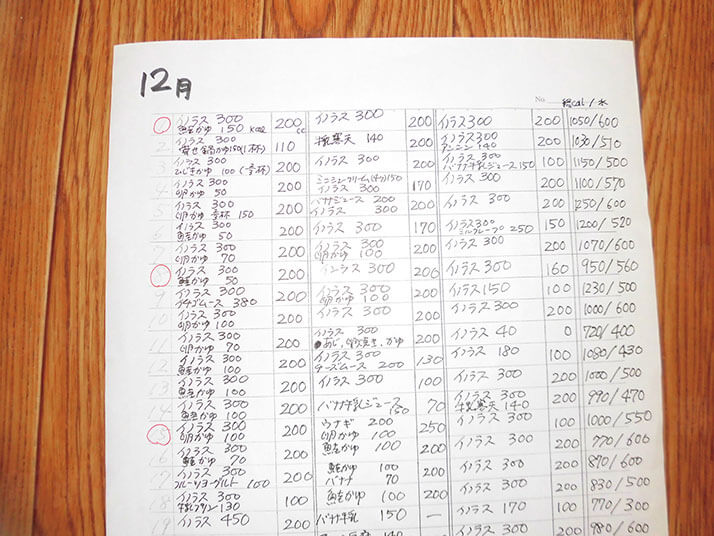 12月
No.
総cal / 水
1 イノラス 300 鮭がゆ 150 kcal 200cc イノラス 300 200 イノラス300 200 1050/600
2 イノラス 300 寄せ鍋がゆ150(1杯) 110 寒天 140 200 イノラス300 140 200 1030/510
3 イノラス 300 ひじきがゆ 100 200 イノラス 300 200 イノラス 300 バナナ牛乳ジュース 150 100 1150/500
4 イノラス 300 卵がゆ 50 200 ミニシュークリーム 150 イノラス 300 170 イノラス 300 200 1100/570
5 イノラス 300 卵がゆ 150 200 バナナジュース 200 イノラス 300 200 イノラス 300 200 1250/600
6 イノラス 300 鮭がゆ 50 200 イノラス 300 170 イノラス300 ミルクレープ 250 150 1200/520
7 イノラス 300 卵がゆ 70 200 イノラス 300 卵がゆ 100 200 イノラス 300 200 1070/600
8 イノラス 300 鮭がゆ 50 200 イノラス 300 200 イノラス 300 160 950/560
9 イノラス 300 イチゴムース 380 200 イノラス 300 卵がゆ 100 200 イノラス150 100 1230/500
10 イノラス 300 卵がゆ 100 200 イノラス 300 200 イノラス300 200 1000/600
11 イノラス 300 卵がゆ 70 200 イノラス 300 あじ、卵焼き、がゆ 200 イノラス 40 0 720/400
12 イノラス 300 鮭がゆ 100 200 イノラス 300 チーズムース 200 130 イノラス 180 100 1080/430
13 イノラス 300 鮭がゆ 100 200 イノラス 300 100 イノラス 300 200 1000/500
14 イノラス 300 鮭がゆ 100 200 バナナ牛乳ジュース 150 70 イノラス 300 牛乳寒天 140 200 990/470
15 イノラス 300 卵がゆ 100 200 ウナギ 200 卵がゆ 100 250 イノラス 300 100 1000/550
16 イノラス 300 鮭がゆ 70 200 鮭がゆ 100 200 イノラス 300 200 770/600
17 イノラス 300 フルーツヨーグルト 100 200 鮭がゆ 100 バナナ 70 200 イノラス 300 200 870/600
18 イノラス 300 牛乳プリン 130 100 鮭がゆ 100 200 イノラス 300 200 830/500
19 イノラス 450 200 バナナ牛乳 150 — イノラス 170 100 770/300
200 イノラス 300 200 980/600